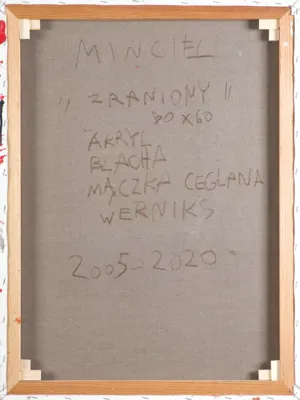 MINCIEL
„ZRANIONY"
80 x 60
AKRYL
BLACHA
MĄCZKA CEGLANA
WERNIKS
2005-2020